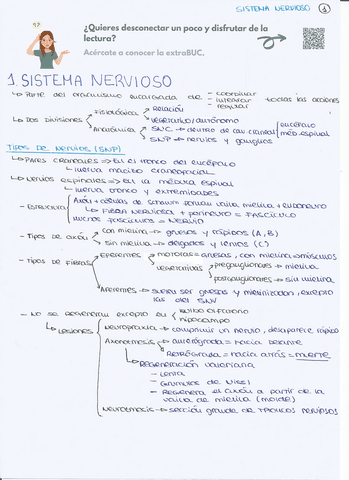 SISTEMA NERVIOSO 1
¿Quieres desconectar un poco y disfrutar de la
lectura?
Acércate a conocer la extraBUC.
1. SISTEMA NERVIOSO
↳ Parte del organismo encargada de - coordinar
- integrar todas las acciones
- regular
↳ Dos divisiones Fisiológica → Relación
→ Vegetativo/autónomo
Anatómica → SNC → dentro de cav. craneal encéfalo
méd. espinal
→ SNP → nervios y ganglios
TIPOS DE NERVIOS (SNP)
↳ Pares craneales => En el tronco del encéfalo
↳ inerva macizo craneofacial
↳ Nervios espinales => En la médula espinal
↳ inerva tronco y extremidades
- Estructura Axón + células de Schwann forman vaina mielina + endoneuro
↳ Fibra nerviosa + perineuro = FASCÍCULO
Muchos fascículos = NERVIO
- Tipos de axón con mielina → gruesos y rápidos (A, B)
sin mielina → delgados y lentos (C)
- Tipos de fibras Eferentes → motoras = gruesas, con mielina → músculos
→ vegetativas → preganglionares → mielina
→ postganglionares → sin mielina
Aferentes → suelen ser gruesas y mielinizadas, excepto
las del SNV
- No se regeneran excepto en bulbo olfatorio
hipocampo
↳ Lesiones Neuropraxia → comprimir un nervio, desaparece rápido
Axonotmesis → anterógrada = hacia delante
→ Retrógrada = hacia atrás = muerte
↳ Regeneración valeriana
- Lenta
- Grumitos de Nissl
- Regenera el axón a partir de la
vaina de mielina (molde)
Neurotmesis → sección grande de troncos nerviosos